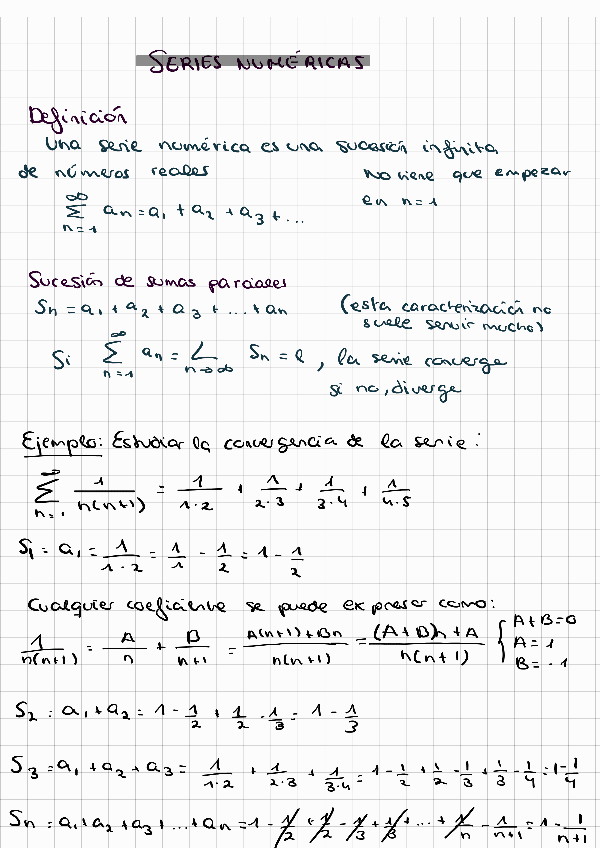 SERIES NUMÉRICAS
Definición
Una serie numérica es una sucesión infinita
de números reales
No tiene que empezar
en n=1
∞ Σ n=1 an = a1 + a2 + a3 + ...
Sucesión de sumas parciales
Sn = a1 + a2 + a3 + ... + an
(esta caracterización no
suele servir mucho)
Si ∞ Σ n=1 an = L n→∞ Sn = l, la serie converge
si no, diverge
Ejemplo: Estudiar la convergencia de la serie:
∞ Σ n=1 1/n(n+1) = 1/1·2 + 1/2·3 + 1/3·4 + 1/4·5
S1 = a1 = 1/1·2 = 1/1 - 1/2 = 1 - 1/2
Cualquier coeficiente se puede expresar como:
1/n(n+1) = A/n + B/n+1 = A(n+1)+Bn/n(n+1) = (A+B)n+A/n(n+1) { A+B=0
A=1
B=-1
S2 = a1 + a2 = 1 - 1/2 + 1/2 - 1/3 = 1 - 1/3
S3 = a1 + a2 + a3 = 1/1·2 + 1/2·3 + 1/3·4 = 1 - 1/2 + 1/2 - 1/3 + 1/3 - 1/4 = 1 - 1/4
Sn = a1 + a2 + a3 + ... + an = 1 - 1/2 + 1/2 - 1/3 + 1/3 + ... + 1/n - 1/n+1 = 1 - 1/n+1